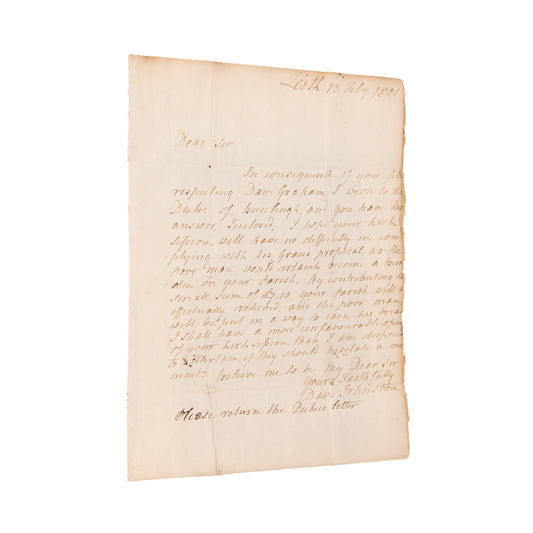 Leith 13 Feby 1801
Dear Sir
In consequence of your
respecting Dav. Graham, I wrote to the
Duke of Buccleugh, and you have his
answer Inclosed. I hope your kirk
Session, will have no difficulty in com
plying with his Graces proposal, as the
poor man would certainly become a bur
den on your Parish. By contributing a
Small Sum of £7.10 your Parish will
effectually relieved, and the poor man
will be put in a way to earn his bread
I shall have a more unfavourable opin
of your kirk Session, than I am disposed
to entertain, if they should hesitate a mo
ment. believe me to be My Dear Sir
Yours Faithfully
Dav. Johnston
Please return the Dukes letter